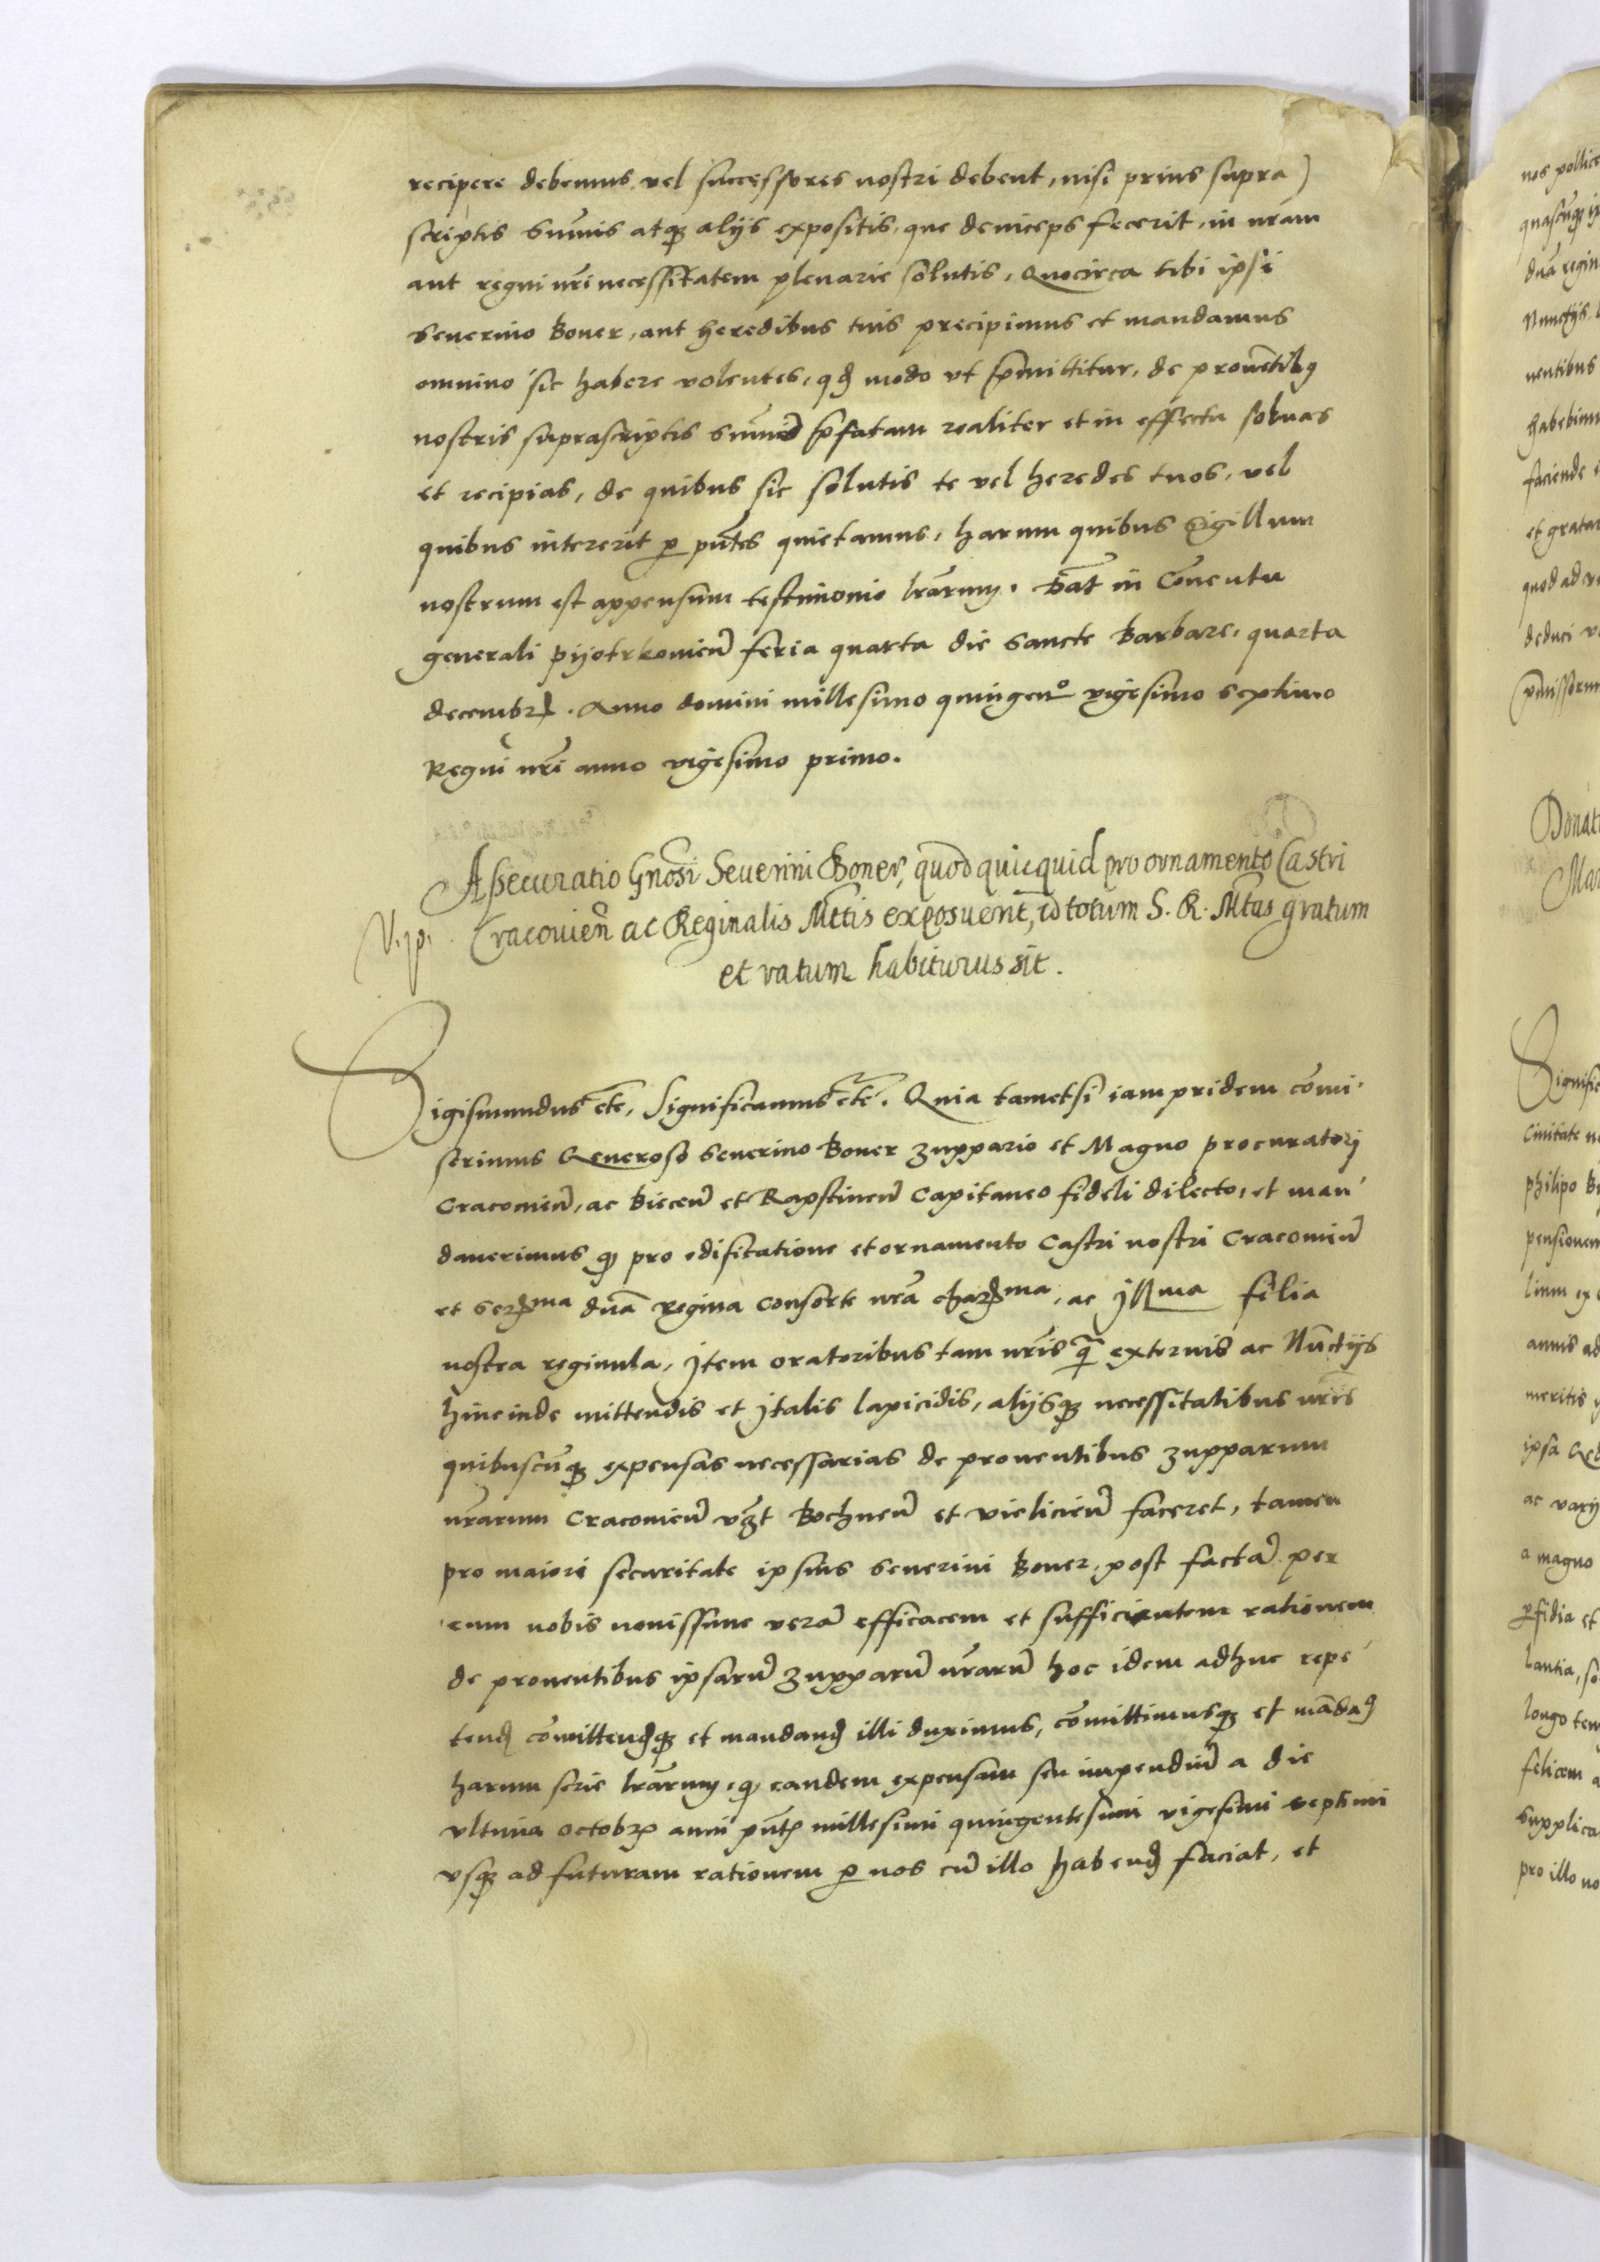 recipere debemus vel successores nostri debent, nisi prius supra
scriptis sum̄is atqꝫ alijs expositis, que deinceps fecerit, in nr̄am
aut regni nr̄i necessitatem plenarie solutis, Quocirca tibi ipsi
Seuerino Boner, aut heredibus tuis precipimus et mandamus
omnino sic habere volentes, qd̄ modo vt p̄mittitur, de prouētibꝰ
nostris suprascriptis sum̄ā p̄fatam realiter et in effectu soluas
et recipias, de quibus sic solutis te vel heredes tuos, vel
quibus intererit ꝑ pn̄tes quietamus, harum quibus Sigillum
nostrum est appensum testimonio lrārum. Dat̄ in Conuentu
generali Pijotrkouien̄ feria quarta die Sancte Barbare, quarta
decembr̄. Anno domini millesimo quingenᵒ vigesimo septimo
Regni nr̄i anno vigesimo primo.
Assecuratio Gn̄osi Seuerini Boner, quod quicquid pro ornamento Castri
V. p. Cracouien̄ ac Reginalis Mt̄tis exposuerit, id totum S. R. Mt̄as gratum
et ratum habiturus sit.
Sigismundus etc̄, Significamus etc̄. Quia tametsi iam pridem com̄i-
serimus Generoso Seuerino Boner Zuppario et Magno procuratori
Cracouien̄, ac Biecen̄ et Rapstinen̄ Capitaneo fideli dilecto, et man
dauerimus qꝫ pro edificatione et ornamento Castri nostri Cracouien̄
et Serᵐᵃ dn̄a Regina Consorte nr̄a charᵐᵃ, ac Illᵐᵃ filia
nostra reginula, Item oratoribus tam nr̄is q̄ externis ac Nūctijs
hincinde mittendis et Italis lapicidis, alijsqꝫ necessitatibus nr̄is
quibuscūqꝫ expensas necessarias de prouentibus zupparum
nr̄arum Cracouien̄ vꝫt Bochnen̄ et Vielicien̄ faceret, tamen
pro maiori securitate ipsius Seuerini Boner, post factā per
eum nobis nouissime verā efficacem et sufficientem rationem
de prouentibus ipsarū zupparū nr̄arū hoc idem adhuc repe
tend̄ com̄ittend̄qꝫ et mandand̄ illi duximus, com̄ittimusqꝫ et mādam̄
harum serie lrārum, qꝫ eandem expensam seu impendiū a die
vltima octobr̄ anni pn̄t̄ millesimi quingentesimi vigesimi septimi
vsqꝫ ad futuram rationem ꝑ nos cū illo habend̄ faciat, et